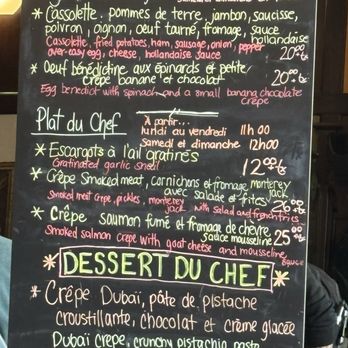 * Cassolette, pommes de terre, jambon, saucisse,
poivron, oignon, oeuf tourné, fromage, sauce
hollandaise
Cassolette, fried potatoes, ham, sausage, onion, pepper
over-easy egg, cheese, hollandaise sauce
20.00+tx
* Oeuf bénédictine aux épinards et petite
crêpe banane et chocolat
20.00+tx
Egg benedict with spinach and a small banana chocolate
crêpe
Plat du Chef
À partir...
lundi au vendredi 11h00
Samedi et dimanche 12h00
* Escargots à l'ail gratinés
Gratinated garlic snail
12.00+tx
* Crêpe Smoked meat, cornichons et fromage monterey
jack avec salade et frites
Smoked meat crepe, pickles, monterey
jack with salad and french fries
* Crêpe saumon fumé et fromage de chèvre
sauce mousseline 25.00+tx
Smoked salmon crepe with goat cheese and mousseline
sauce
* DESSERT DU CHEF *
* Crêpe Dubaï, pâte de pistache
croustillante, chocolat et crème glacée
Dubaï crêpe, crunchy pistachio pasta